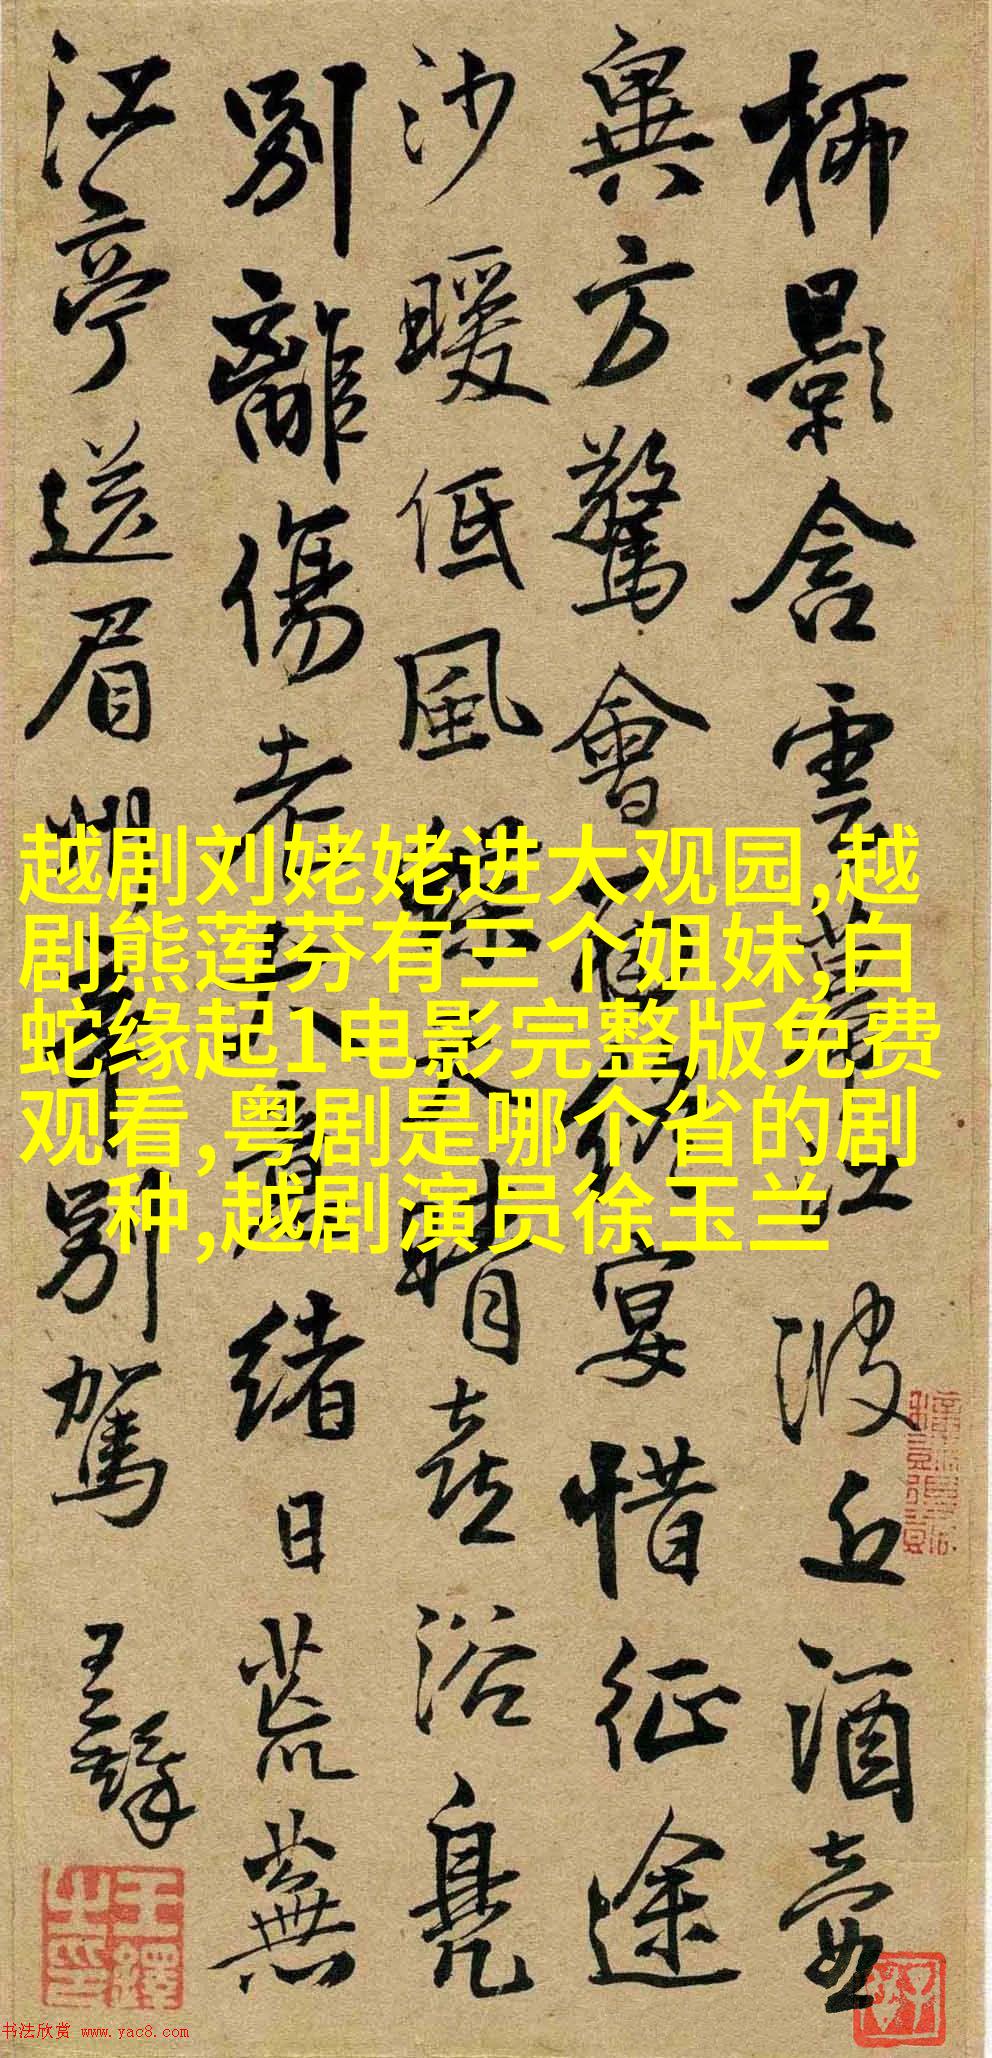 柳影含雲幕江波近酒壺
異方驚會面終宴惜征途
沙暖低風蝶天晴喜浴鳧
別離傷老大意緒日荒蕪
江亭送眉州辛別駕
王鐸
越剧刘姥姥进大观园,越
剧熊莲芬有三个姐妹,白
蛇缘起1电影完整版免费
观看,粤剧是哪个省的剧
种,越剧演员徐玉兰
书法欣赏 www.yac8.com